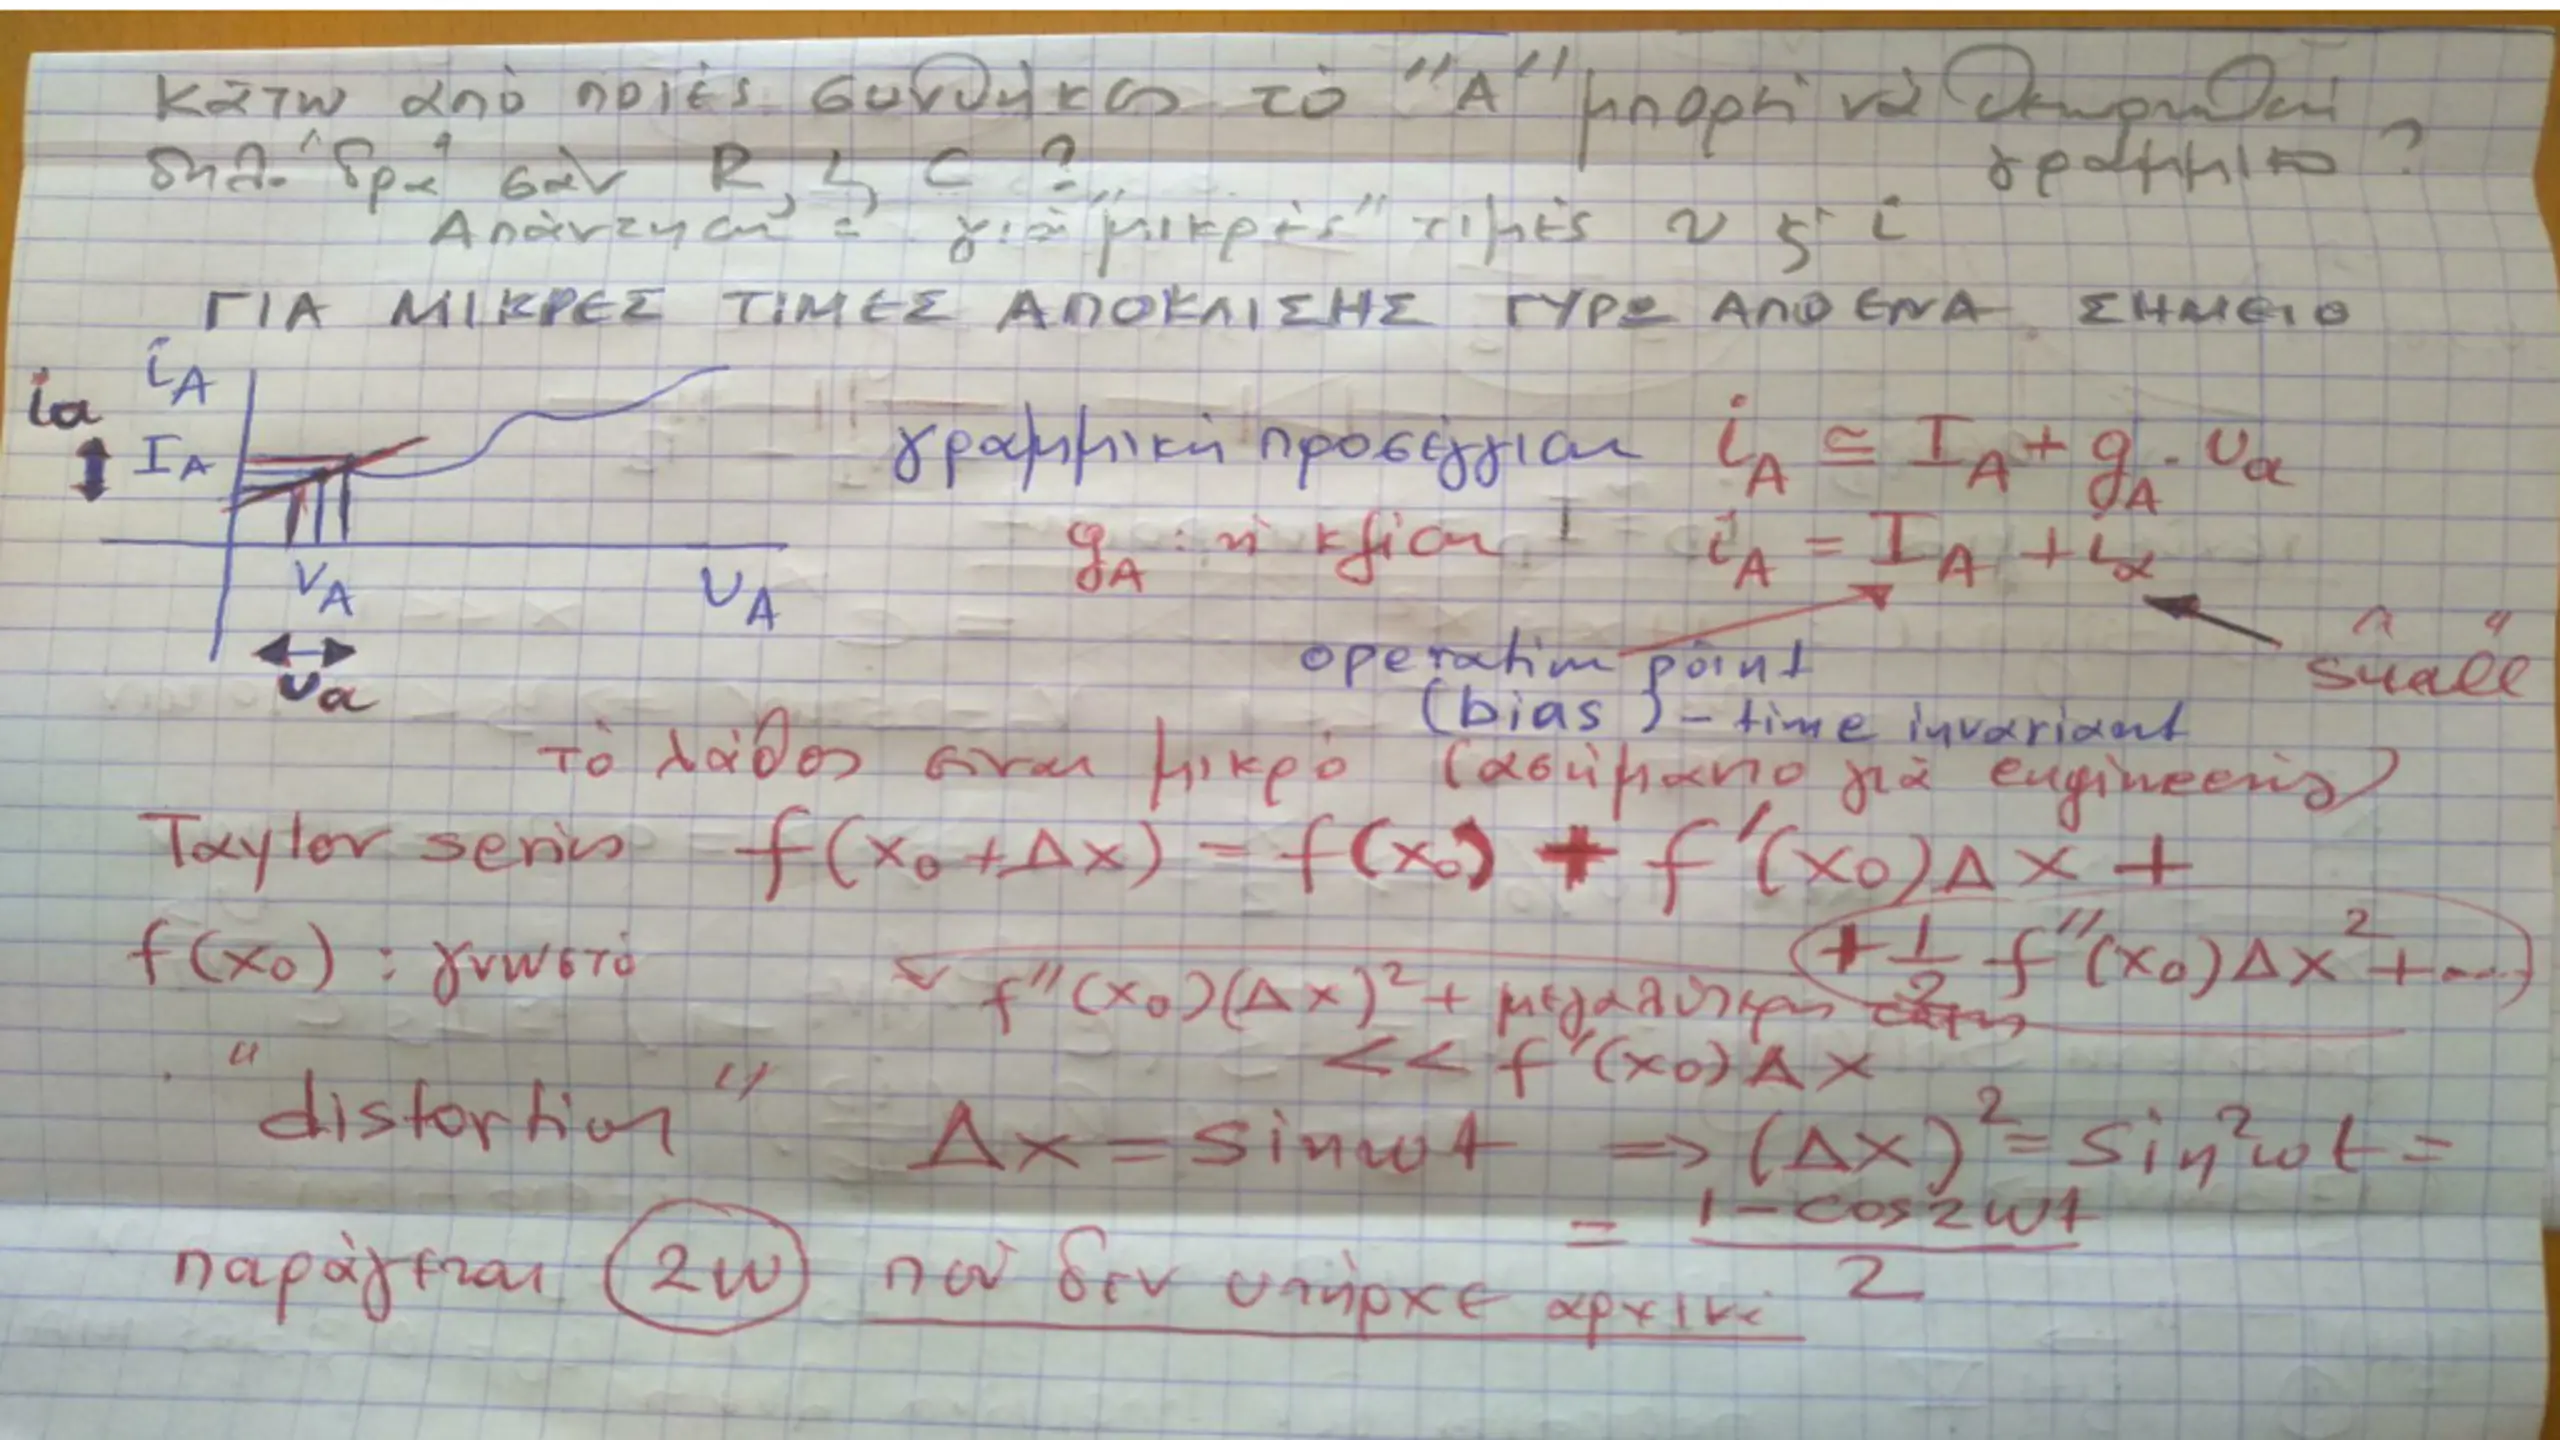 Κάτω από ποιές συνθήκες τό "Α" μπορεί νά θεωρηθεί
γραμμικό ?
δηλ. "δρα" σάν R, L, C ?
Απάντηση : γιά "μικρές" τιμές υ ξ' i
ΓΙΑ ΜΙΚΡΕΣ ΤΙΜΕΣ ΑΠΟΚΛΙΣΗΣ ΓΥΡΩ ΑΠΟ ΕΝΑ ΣΗΜΕΙΟ
iA
ia
IA
VA
υA
υa
γραμμική προσέγγιση iA ≃ IA + gA · υa
gA : ή κλίση iA = IA + iα
"small"
operation point
(bias) - time invariant
τό λάθος είναι μικρό (ασήμαντο γιά engineering)
Taylor series f(x₀+Δx) = f(x₀) + f'(x₀)Δx +
+ 1/2 f''(x₀)Δx² + ...
f(x₀) : γνωστό
f''(x₀)(Δx)² + μεγαλύτερης τάξης
<< f'(x₀)Δx
"distortion" Δx = sinωt => (Δx)² = sin²ωt =
= 1-cos2ωt / 2
παράγεται 2ω πού δεν υπήρχε αρχικά